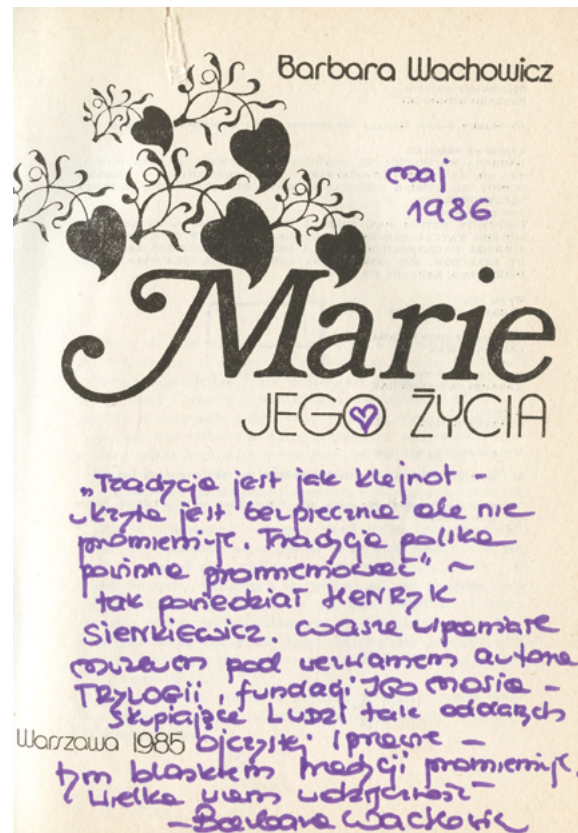 Barbara Wachowicz
maj
1986
Marie
JEGO ŻYCIA
„Tradycja jest jak klejnot –
ukryta jest bezpieczna ale nie
promieniuje. Tradycja polska
powinna promieniować" ~
tak powiedział HENRYK
SIENKIEWICZ. Wasze wspaniałe
muzeum pod wezwaniem autora
TRYLOGII, fundacji JÓZ
skupiające LUDZI tak oddanych
Warszawa 1985
ojczystej sprawie –
tym blaskiem tradycji promieniuje.
Wielka wam wdzięczność –
– Barbara Wachowicz